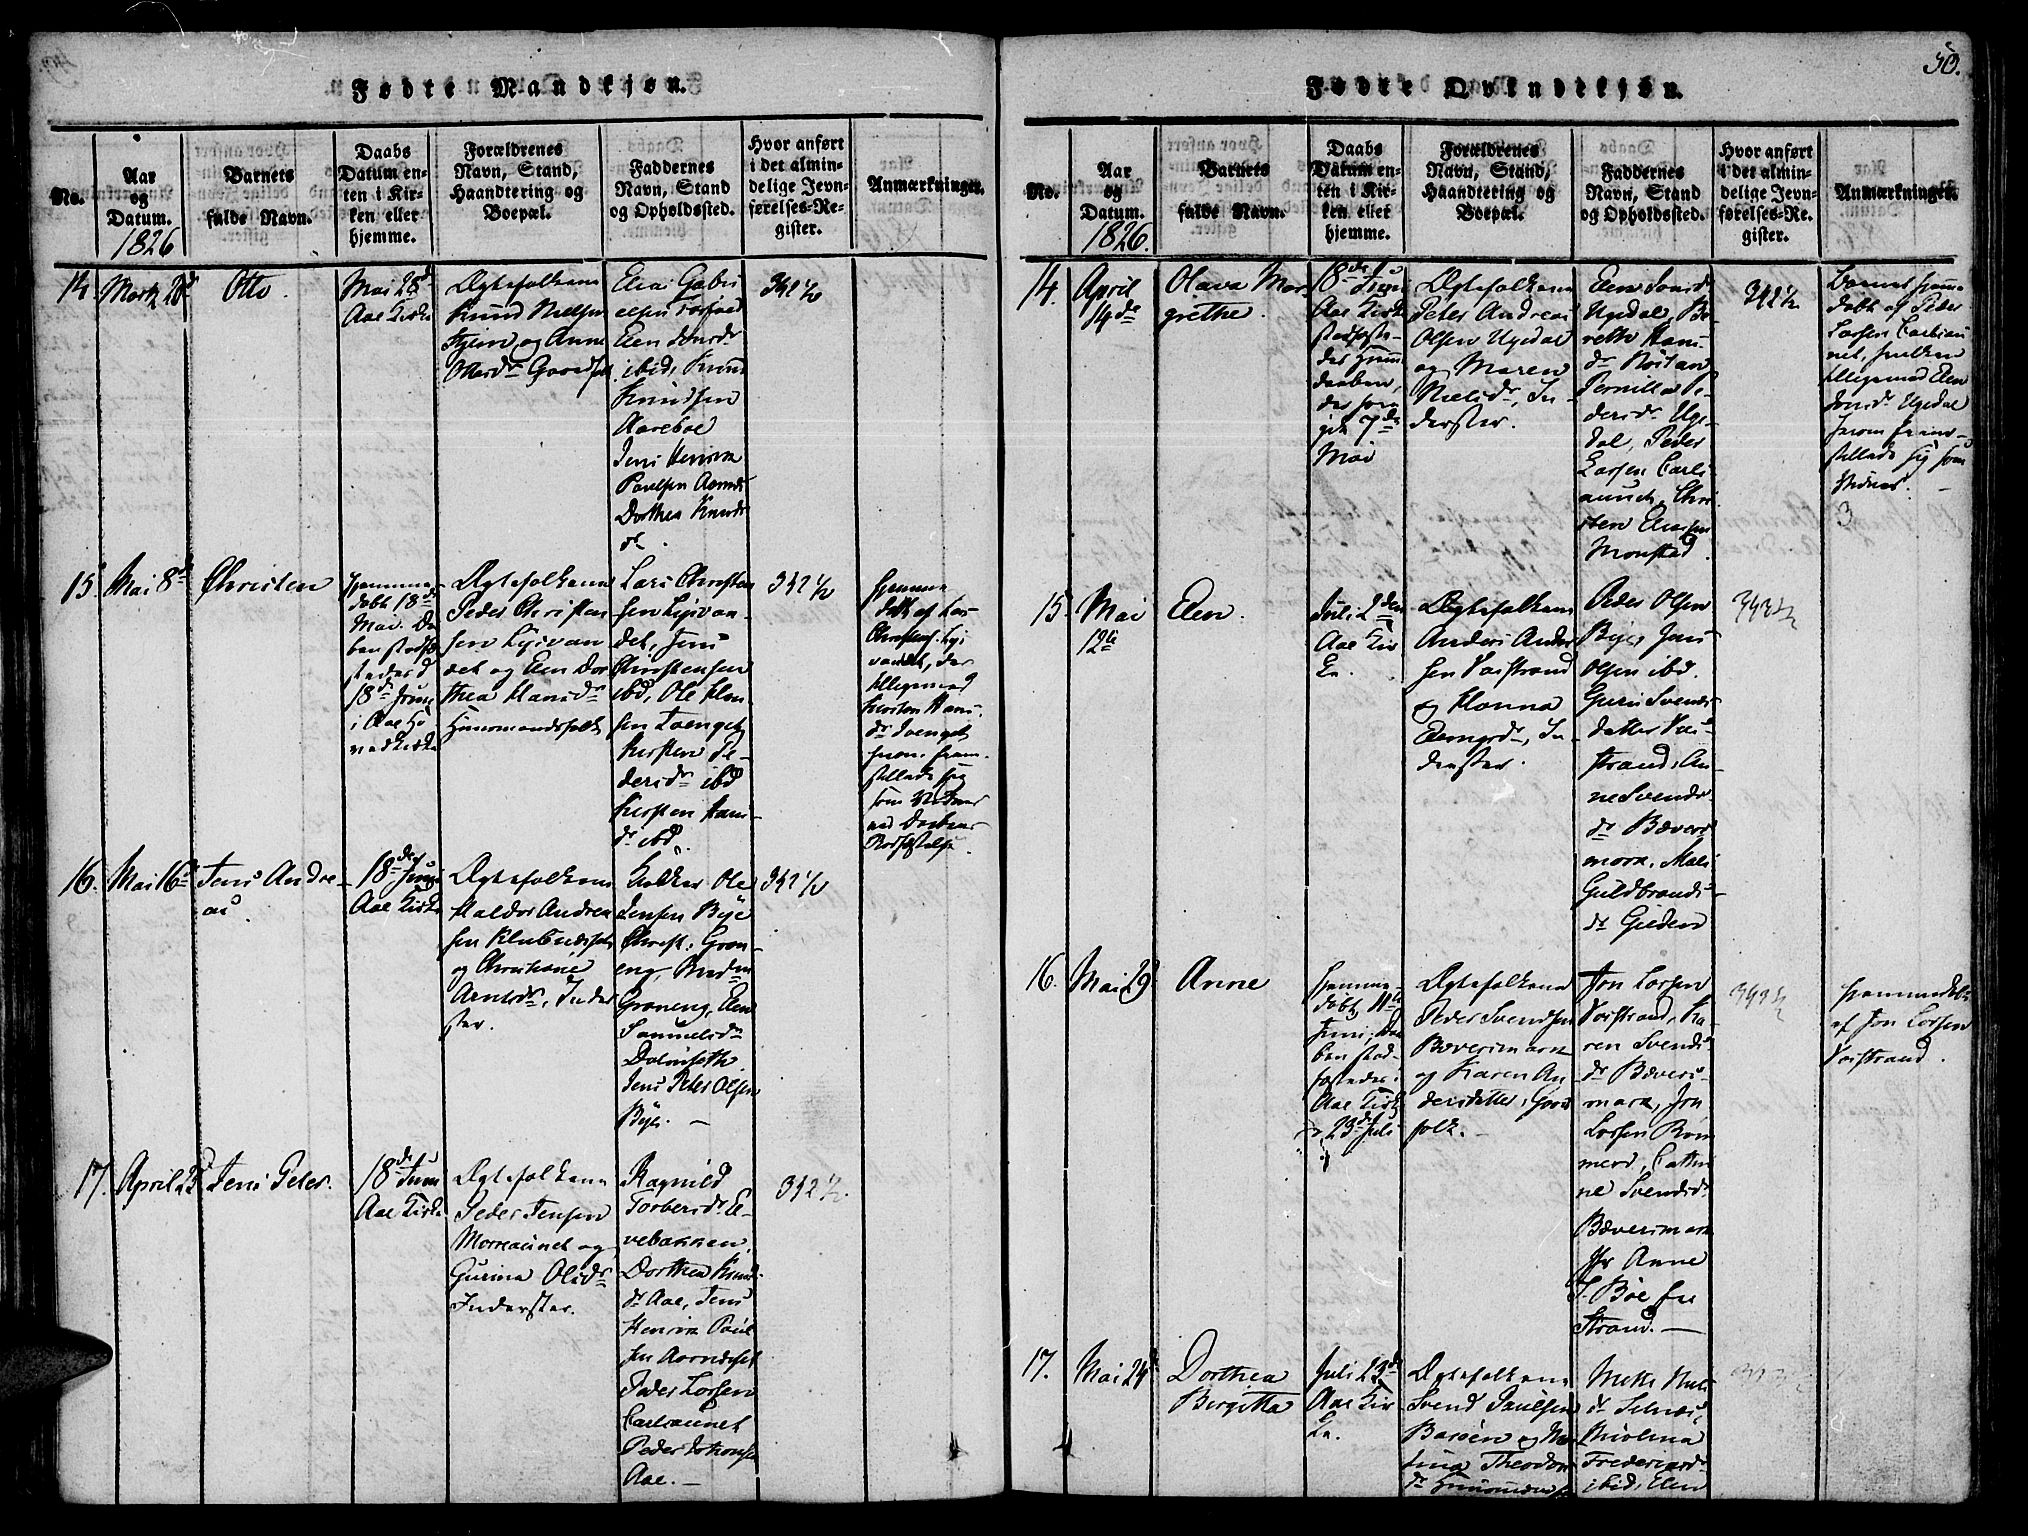 Fødte Mandkjøn.
No.
Aar
og
Datum.
1826
Barnets
fulde Navn.
Daabs
Datum en-
ten i Kir-
ken eller
hjemme.
Forældrenes
Navn, Stand,
Haandtering og
Boepæl.
Faddernes
Navn, Stand
og Opholdssted.
Hvor anført
i det almin-
delige Jevn-
førelses-Re-
gister.
Anmærkninger.
14.
Otto.
Mai 28d
Aae Kirke
Ægtefolkene
Knud Nielsen
og Anne
Een Jonsd
ibid, Knud
Knudsen
Aareboe
Jens Henrik
Paulsen
Dorthea Knuds
dr.
342 1/2
15.
Mai 8de
Christen
Hjemme-
døbt 18de
Mai. Da
18de Juni
i Aae Ho
vedkirke
Ægtefolkene
Peder Christen
sen Lysvan
det og Elen Dor
thea Hansdr
Huusmandsfolk
Lars Christen
sen Lysvan
det, Jens
Christensen
ibd, Ole Han
sen Svenget
Kirsten Pe-
dersdr ibd
Kirsten Hans
dr ibd.
342 1/2
Hjemme
døbt af Lars
Christens. Lys
vandet, der
tilligemed
Kirsten Hans
dr Svenget
frem-
stillede sig
som Vidner
ved Daabens
Stadfæstelse.
16.
Mai 16d
Jens Andre
as.
18de Juni
Aae Kirke
Ægtefolkene
Haldor Andrea
sen
og Christiane
Arntsdr, Inder
ster.
Ole
Jensen Bye
Christ: Gron
eng,
Groneng, Elen
Samuelsdr
Jens Peter Olsen
Bye. —
342 1/2
17.
April 23d
Jens Peter.
18de Juni
Aae Kirke
Ægtefolkene
Peder Jensen
Morreaunet og
Gurina Olsdr
Inderster.
Ragnild
Torbersdr E-
vebakken,
Dorthea Knuds
dr Aae, Jens
Henrik Paul
sen
Peder Larsen
Carlsaunet
Peder Johnsen
Aae. —
342 1/2.
50.
Fødte Qvindekjøn.
No.
Aar
og
Datum.
1826.
Barnets
fulde Navn.
Daabs
Datum en-
ten i Kir-
ken eller
hjemme.
Forældrenes
Navn, Stand,
Haandtering og
Boepæl.
Faddernes
Navn, Stand
og Opholdssted.
Hvor anført
i det almin-
delige Jevn-
førelses-Re-
gister.
Anmærkninger.
14.
April
14de
Olava Mar-
grethe.
18de Juni
Aae Kirke
stadfæste-
des Hjem
daaben,
der fore
gik 7de
Mai
Ægtefolkene
Peter Andreas
Olsen Ugedal
og Maren
Nielsdr, In-
derster.
Elen Jonsdr
Ugedal, Be-
reth Hans
dr
Pernilla Pe-
dersdr Uge-
dal, Peder
Larsen Carls
aunet, Chri
sten Ellingsen
Monstad.
342 1/2
Barnet hjemme
døbt af Peder
Larsen Carlsau
net, hvilken
tilligemed Elen
Jonsdr Ugedal
frem-
stillede sig som
Vidner.
3
15.
Mai
12te
Elen.
Juli 2den
Aae Kir
ke.
Ægtefolkene
Anders Ander
sen Vaistrand
og Hanna
In-
derster.
Peder Olsen
Bye, Jens
Olsen ibd.
Guru Svends
datter Vai-
strand, An-
ne Svends-
dr Bævers
mark, Mali
Guldbrands
dr Gjeden
343 1/2
16.
Mai 19
Anne
Hjemme-
døbt 11te
Juni, Daa
ben stad-
fæstedes i
Aae Kirke
23de Juli
Ægtefolkene
Peder Svendsen
Bæversmark
og Karen An
dersdatter, Gaard
folk. —
Jon Larsen
Vaistrand, Ka-
ren Svends
dr Bævers-
mark, Jon
Larsen Rom
Cathri
ne Svendsdr
Bæversmark
Jfr Anne
S. Boe fra
Strand. —
343 1/2
Hjemmedøbt
af Jon Larsen
Vaistrand.
17.
Mai 24d
Dorthea
Birgitta
Juli 23de
Aae Kir
ke.
Ægtefolkene
Svend Paulsen
Barøen og
Theodor
dr
Mette Niels
dr Selnæs,
Nicolina
Frederiksdr
ibid, Elen